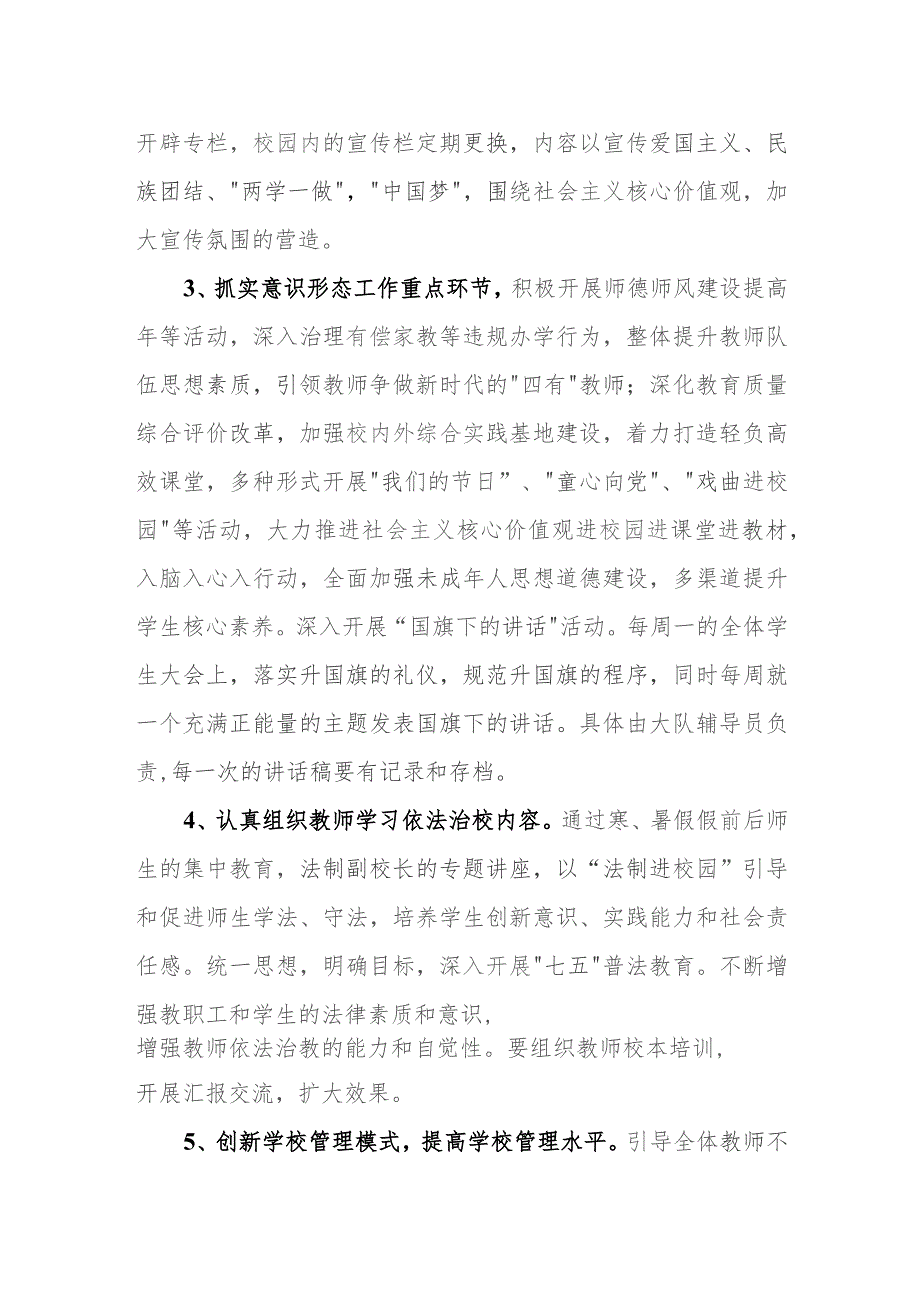 开辟专栏，校园内的宣传栏定期更换，内容以宣传爱国主义、民
族团结、"两学一做"，"中国梦"，围绕社会主义核心价值观，加
大宣传氛围的营造。
3、抓实意识形态工作重点环节，积极开展师德师风建设提高
年等活动，深入治理有偿家教等违规办学行为，整体提升教师队
伍思想素质，引领教师争做新时代的"四有"教师；深化教育质量
综合评价改革，加强校内外综合实践基地建设，着力打造轻负高
效课堂，多种形式开展"我们的节日”、"童心向党"、"戏曲进校
园"等活动，大力推进社会主义核心价值观进校园进课堂进教材，
入脑入心入行动，全面加强未成年人思想道德建设，多渠道提升
学生核心素养。深入开展“国旗下的讲话"活动。每周一的全体学
生大会上，落实升国旗的礼仪，规范升国旗的程序，同时每周就
一个充满正能量的主题发表国旗下的讲话。具体由大队辅导员负
责,每一次的讲话稿要有记录和存档。
4、认真组织教师学习依法治校内容。通过寒、暑假假前后师
生的集中教育，法制副校长的专题讲座，以“法制进校园”引导
和促进师生学法、守法，培养学生创新意识、实践能力和社会责
任感。统一思想，明确目标，深入开展"七五"普法教育。不断增
强教职工和学生的法律素质和意识,
增强教师依法治教的能力和自觉性。要组织教师校本培训,
开展汇报交流，扩大效果。
5、创新学校管理模式，提高学校管理水平。引导全体教师不